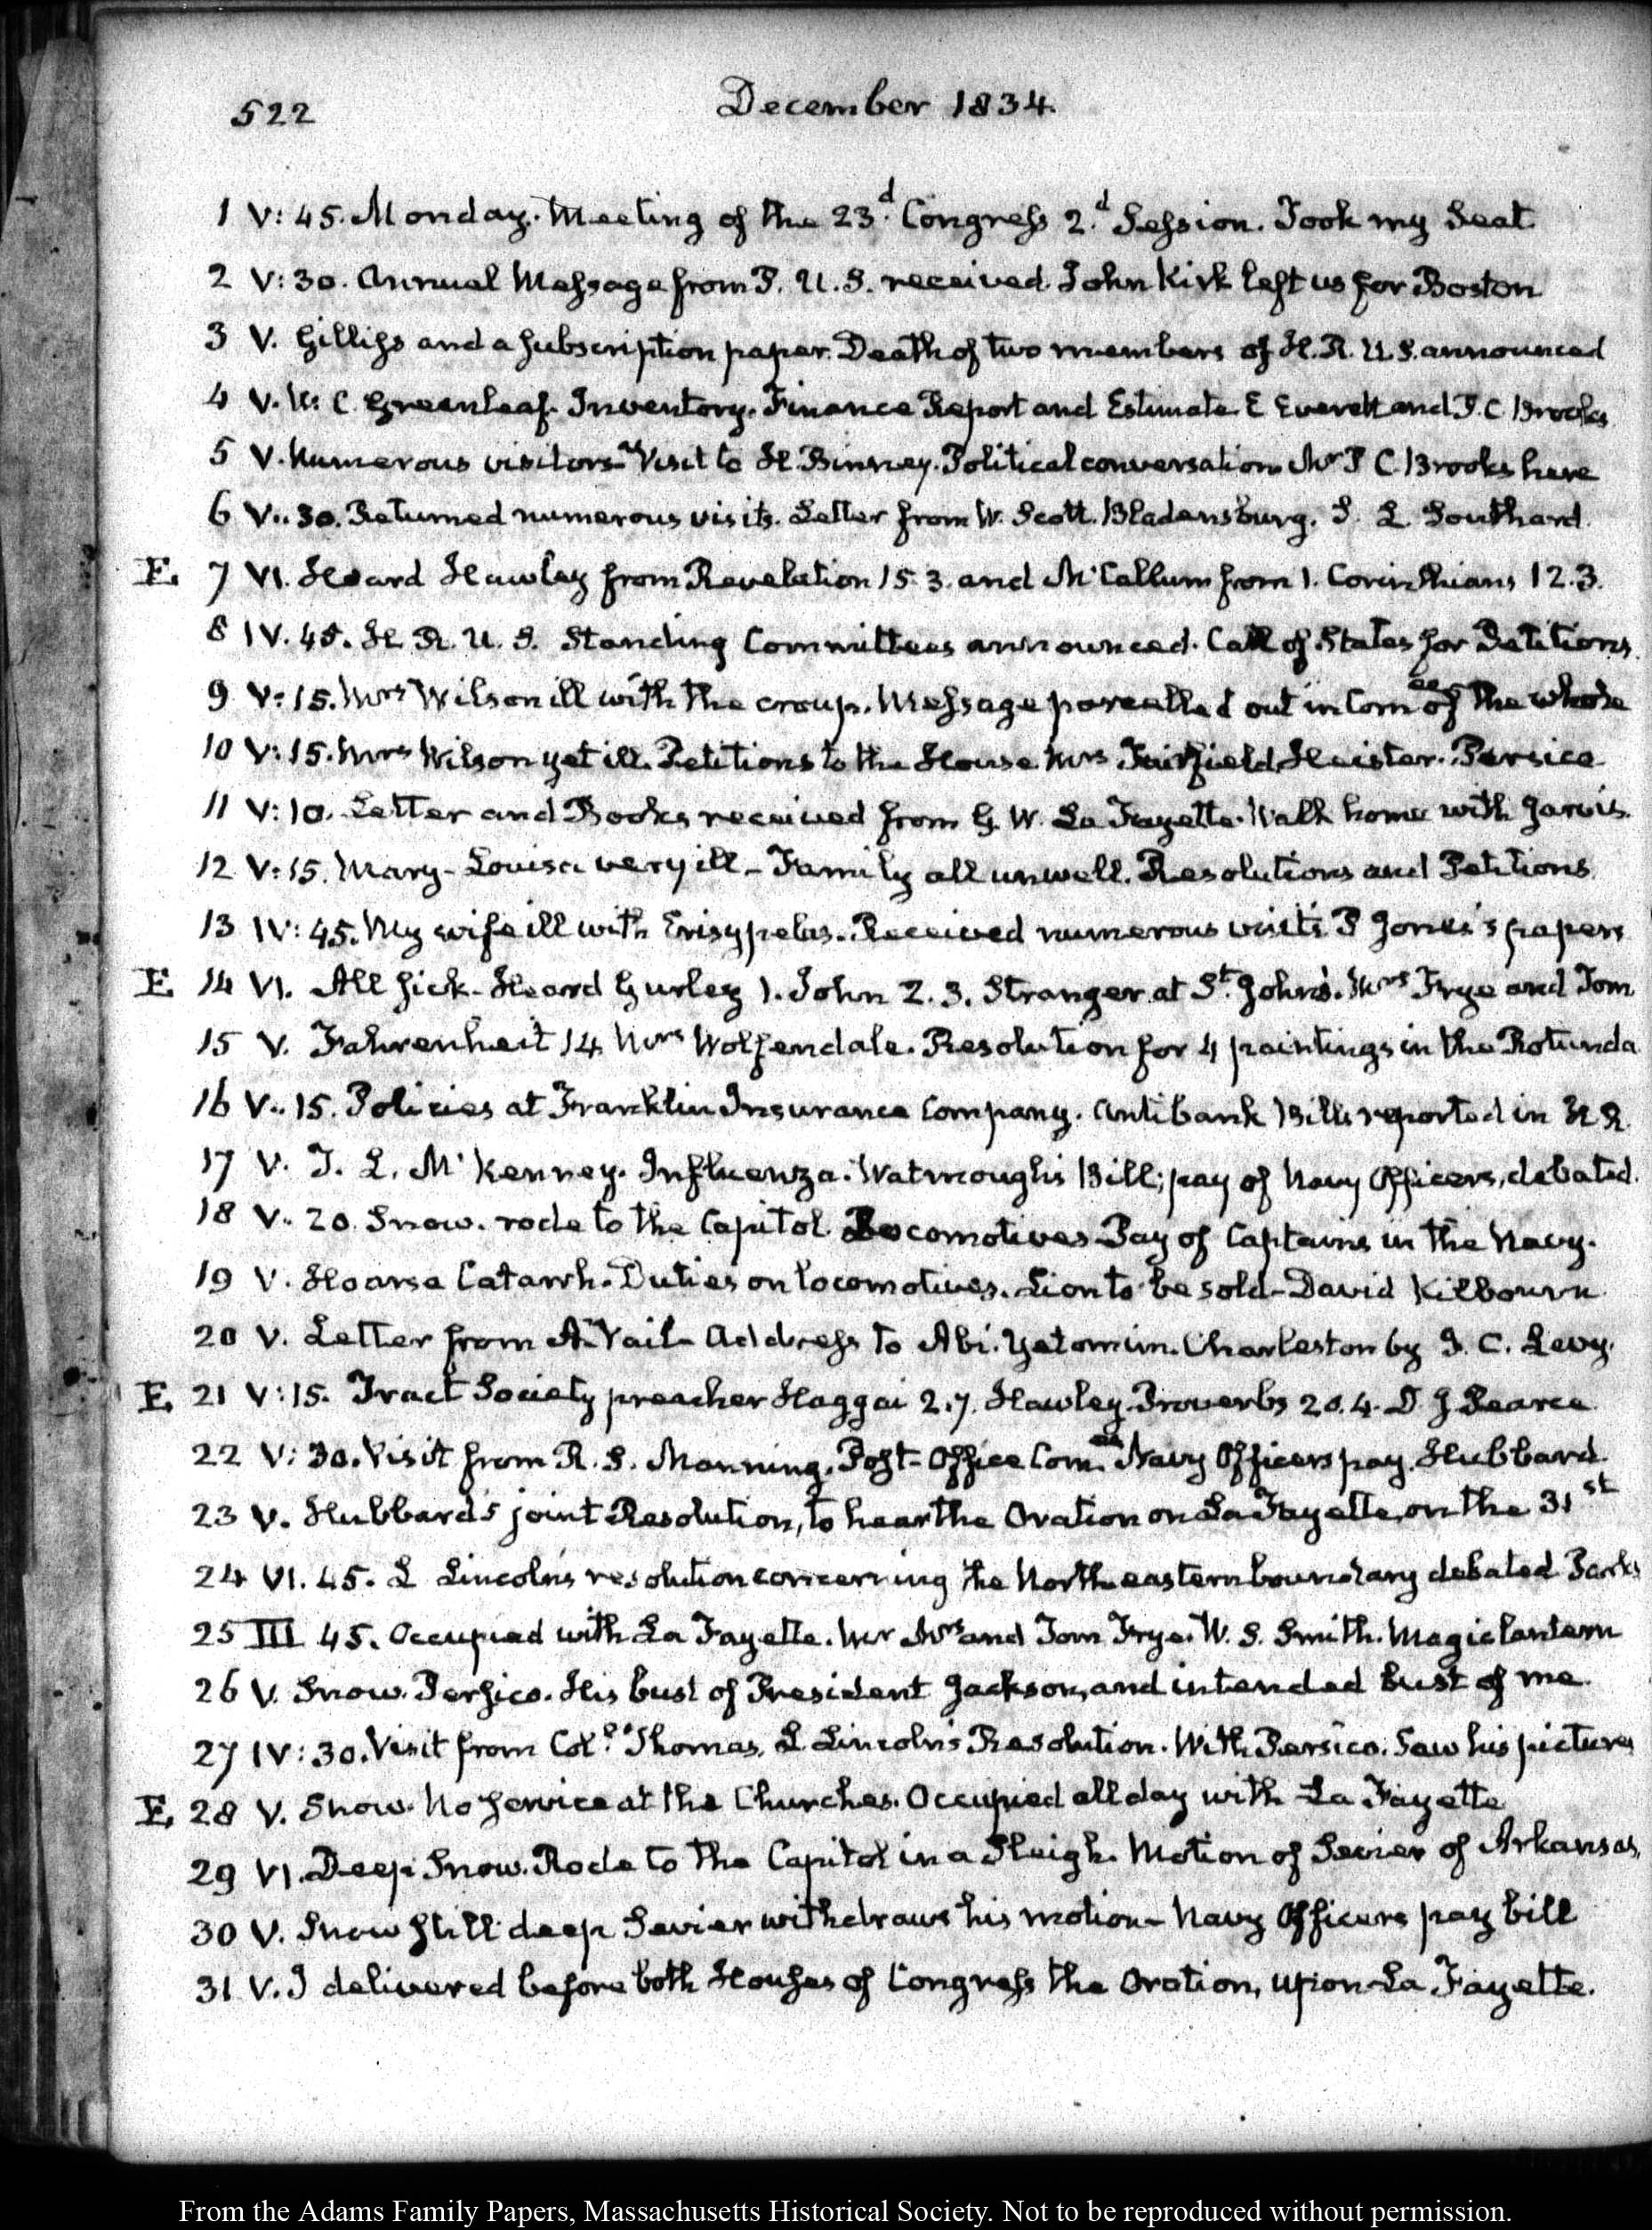 522
December 1834.
1 V: 45. Monday. Meeting of the 23.d Congress 2.d Session. Took my Seat
2 V: 30. Annual Message from P. U. S. received. John Kirk left us for Boston
3 V. Gilliss and a subscription paper. Death of two members of H. R. U. S. announced
4 V. W. C. Greenleaf. Inventory. Finance Report and Estimate. E Everett and P. C Brooks
5 V. Numerous visitors. Visit to H. Binney. Political conversation Mr P C. Brooks here
6 V. 30. Returned numerous visits. Letter from W. Scott. Bladensburg. S. L. Southard.
E. 7 VI. Heard Hawley from Revelation 15. 3. and McCallum from 1. Corinthians 12. 3.
8 IV. 45. H. R. U. S. Standing Committees announced. Call of States for Petitions.
9 V: 15. Mrs Wilson ill with the croup. Message parcelled out in Comee of the whole
10 V: 15. Mrs Wilson yet ill. Petitions to the House Mrs Fairfield. Heister. Persico
11 V: 10. Letter and Books received from G. W. La Fayette. Walk home with Jarvis.
12 V: 15. Mary-Louisa very ill - Family all unwell. Resolutions and Petitions.
13 IV: 45. My wife ill with Erisypelas. Received numerous visits P Jones's papers
E. 14 VI. All sick. Heard Gurley 1. John 2. 3. Stranger at St. John's. Mrs Frye and Tom
15 V. Fahrenheit 14. Mrs Wolfendale. Resolution for 4 paintings in the Rotunda
16 V. 15. Policies at Franklin Insurance Company. Antibank Bills reported in H. R.
17 V. T. L. McKenney. Influenza. Watmough's Bill; pay of Navy Officers, debated.
18 V. 20. Snow. rode to the Capitol Locomotives Pay of Captains in the Navy.
19 V. Hoarse Catarrh. Duties on locomotives. Lion to be sold - David Kilbourn
20 V. Letter from A. Vail - Address to Abi. Yetomim. Charleston by J. C. Levy.
E. 21 V: 15. Tract Society preacher Haggai 2. 7. Hawley. Proverbs 20. 4. D. J. Pearce
22 V: 30. Visit from R. S. Manning. Post-Office Comee Navy Officers pay. Hubbard.
23 V. Hubbard's joint Resolution, to hear the Oration on La Fayette, on the 31st
24 VI. 45. L Lincoln's resolution concerning the North eastern boundary debated Parks
25 III 45. Occupied with La Fayette. Mr Mrs and Tom Frye. W. S. Smith. Magic lantern
26 V. Snow. Persico. His bust of President Jackson, and intended bust of me.
27 IV: 30. Visit from Coll. Thomas. L Lincoln's Resolution. With Persico. Saw his pictures
E. 28 V. Snow. No service at the Churches. Occupied all day with La Fayette
29 VI. Deep Snow. Rode to the Capitol in a Sleigh. Motion of Sevier of Arkansas.
30 V. Snow still deep Sevier withdraws his motion - Navy Officers pay bill
31 V. I delivered before both Houses of Congress the Oration, upon La Fayette.
From the Adams Family Papers, Massachusetts Historical Society. Not to be reproduced without permission.